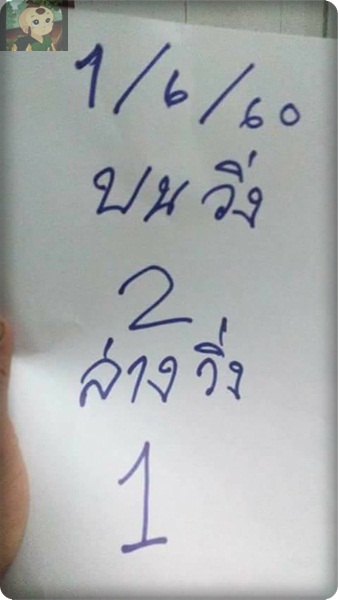 1/6/60
บนวิ่ง
2
ล่างวิ่ง
1